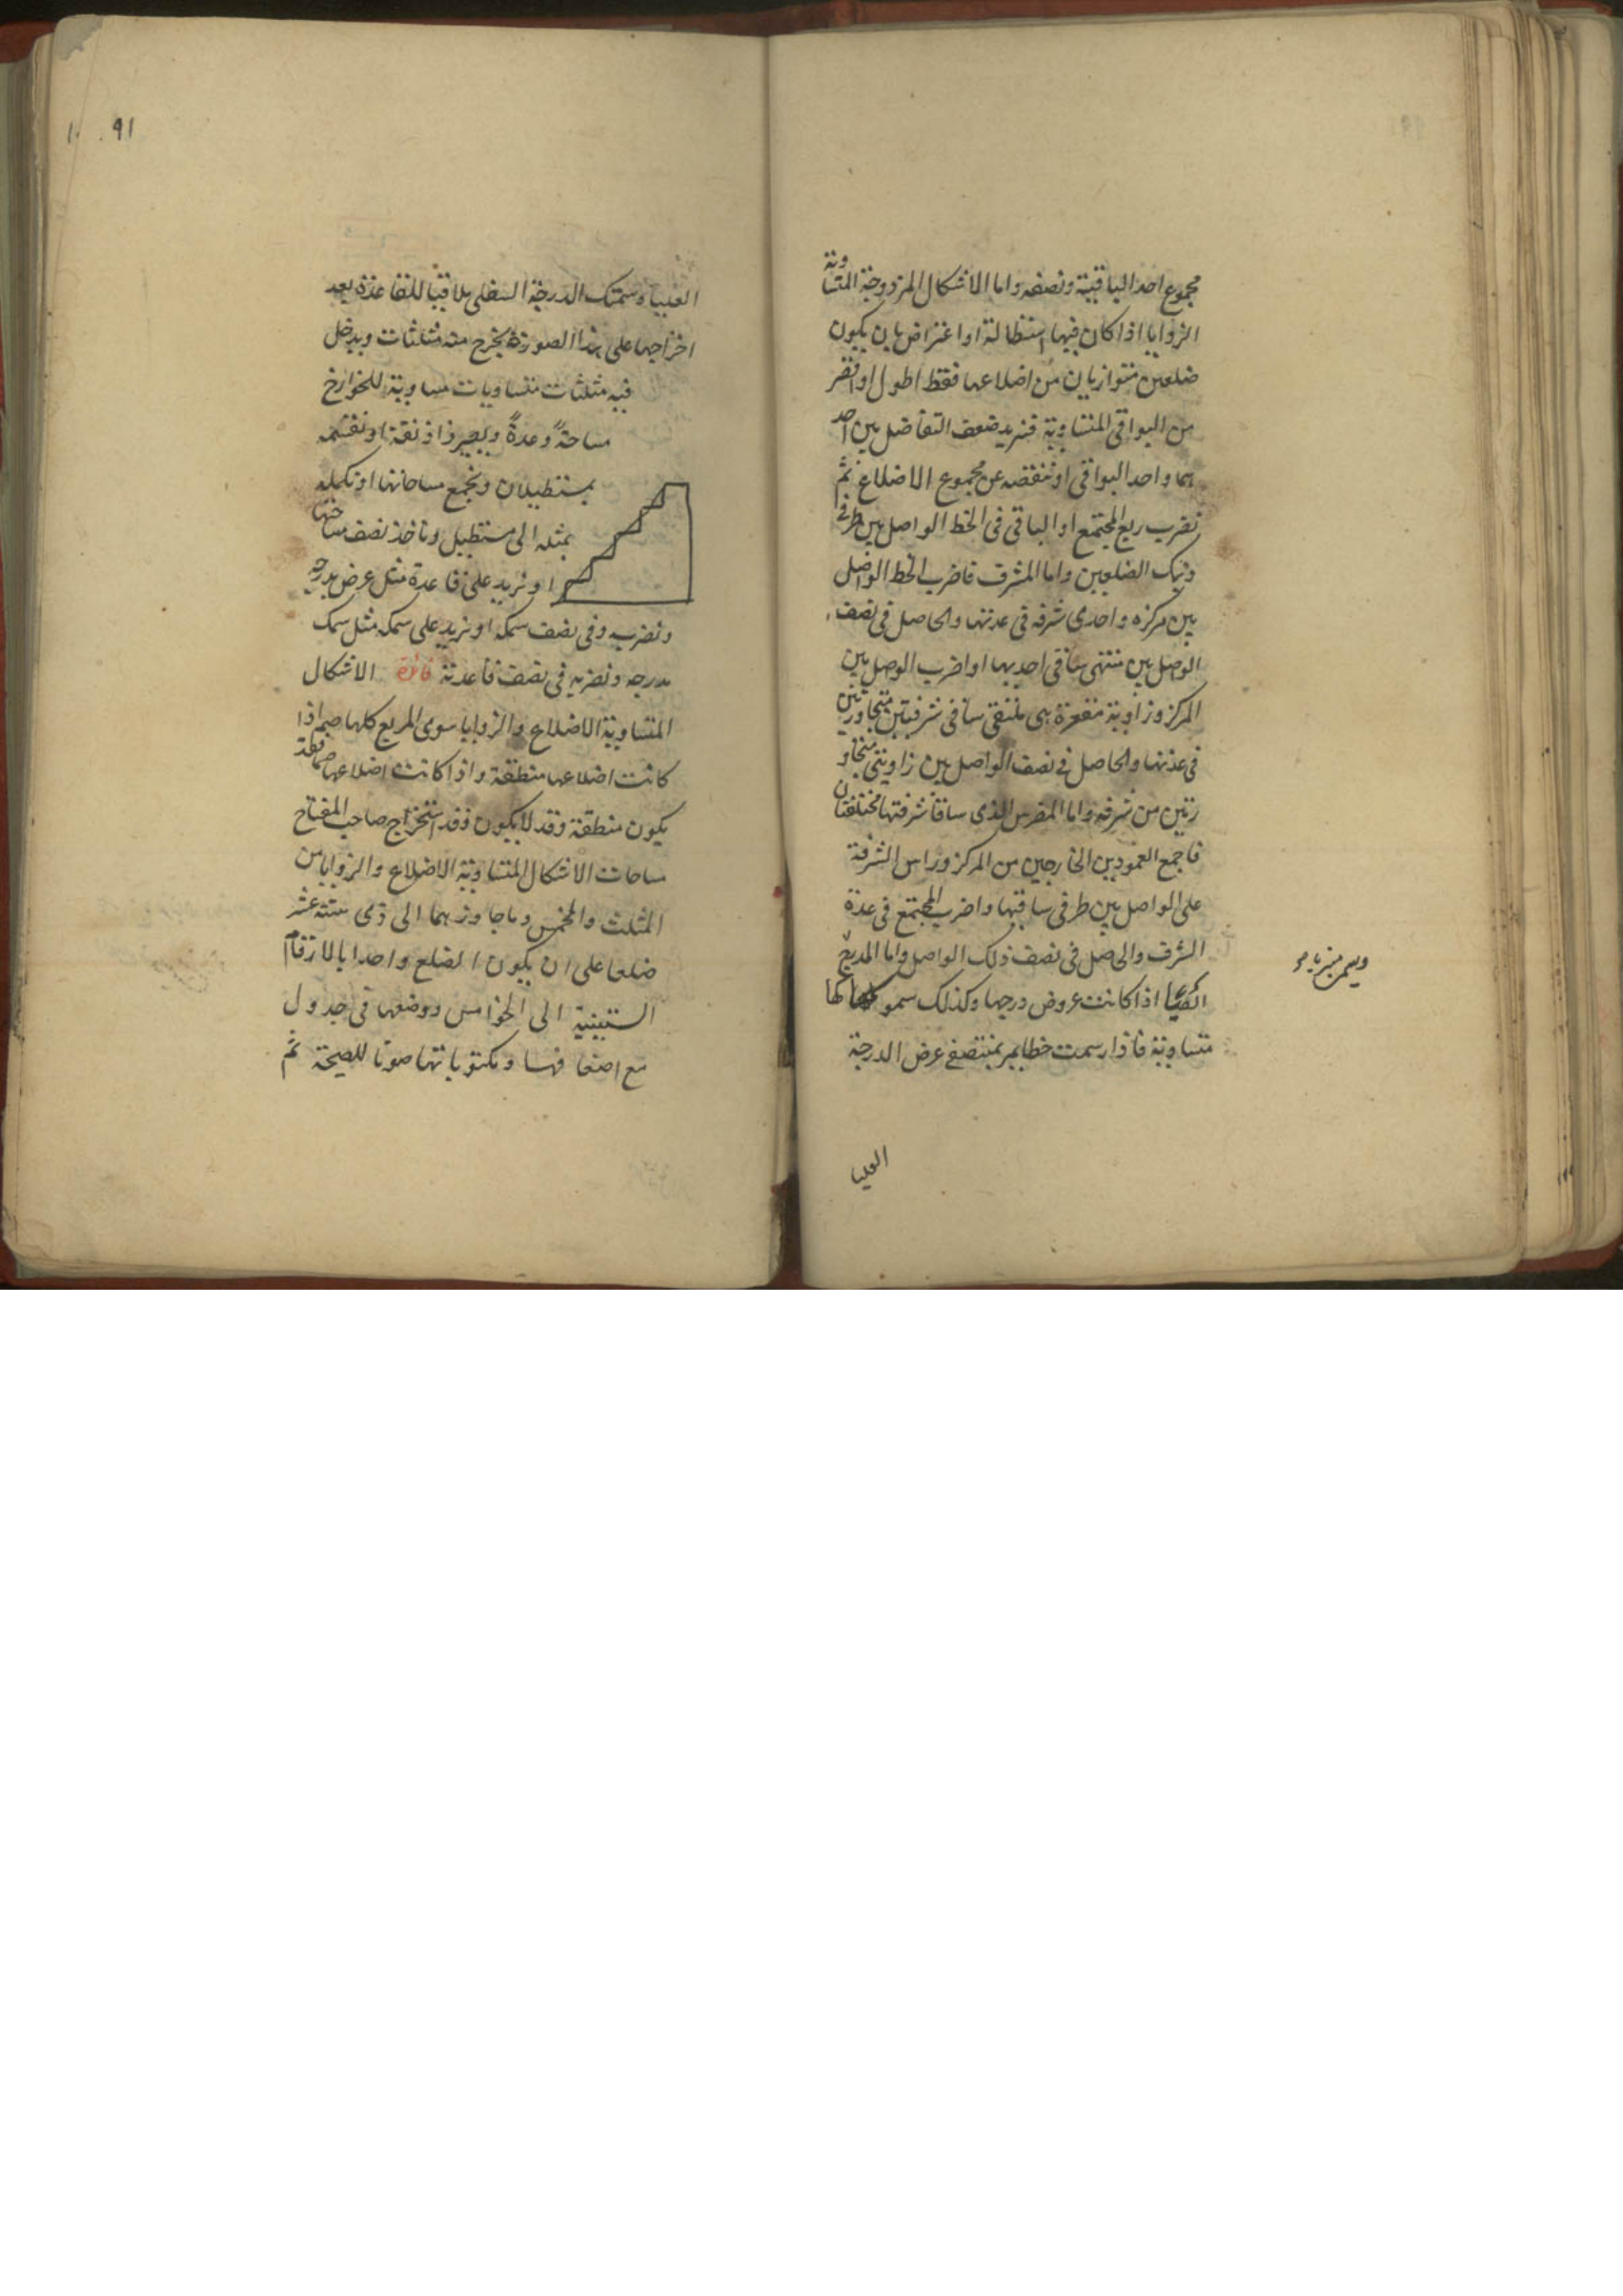 مجموع احد الباقية ونصفه واما الاشكال المزدوجة المتساوية
الزوايا اذا كان فيها استطالة او اعتراض بان يكون
ضلعين متوازيان من اضلاعها فقط اطول او اقصر
من البواقى المتساوية فنزيد ضعف التفاضل بين احد
هما واحد البواقى او ننقصه عن مجموع الاضلاع ثم
نضرب ربع المجتمع او الباقى فى الخط الواصل بين طرفى
ذينك الضلعين واما المشرف فاضرب الخط الواصل
بين مركزه واحدى شرفه فى عدتها والحاصل فى نصف
الوصل بين منتهى ساقى احديها او اضرب الوصل بين
المركز وزاوية مقعرة هى ملتقى ساقى شرفيتين متجاورتين
فى عدتها والحاصل فى نصف الواصل بين زاويتى متجاو
رتين من شرفه واما المضرس الذى ساقا شرفتها مختلفتان
فاجمع العمودين الخارجين من المركز وراس الشرفة
على الواصل بين طرفى ساقيها واضرب المجتمع فى عدة
الشرف والحاصل فى نصف ذلك الواصل واما المدرج
اذا كانت عروض درجها وكذلك سموكها
متساوية فاذا رسمت خطا يمر بمنتصفى عرض الدرجة
العليا
91
العليا وسمك الدرجة السفلى ملاقيا للقاعدة بعد
اخراجها على هذا الصورة يخرج منه مثلثات ويدخل
فيه مثلثات متساويات مساوية للخوارج
مساحة وعدة ويصير ذا ذنقة او نقسمه
بمستطيلات ونجمع مساحاتها او نكمله
بمثله الى مستطيل وناخذ نصف مساحتها
او نزيد على قاعدة مثل عرض مدرجه
ونضربه فى نصف سمكه او نزيد على سمكه مثل سمك
مدرجه ونضربه فى نصف قاعدته فائدة الاشكال
المتساوية الاضلاع والزوايا سوى المربع كلها صم اذا
كانت اضلاعها منطقة واذا كانت اضلاعها صما فقد
يكون منطقة وقد لا يكون وقد استخرج صاحب المفتاح
مساحات الاشكال المتساوية الاضلاع والزوايا من
المثلث والمخمس وما جاوزهما الى ذى ستة عشر
ضلعا على ان يكون الضلع واحدا بالارقام
الستينية الى الخوامس ووضعها فى جدول
مع اضعافها ومكتوباتها صونا للصحة ثم